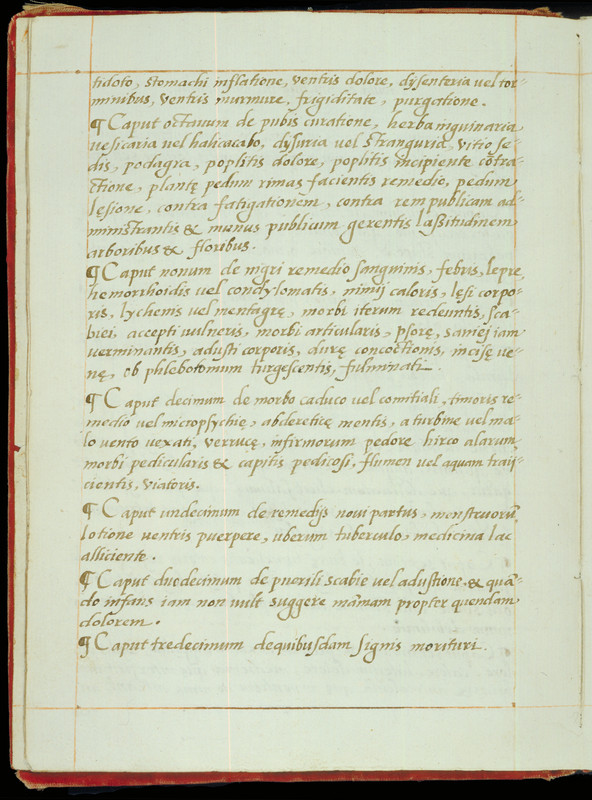 tidoto, stomachi inflatione, ventris dolore, dysenteria vel tor-
minibus, ventris murmure, frigiditate, purgatione.
¶ Caput octavum de pubis curatione, herba inguinaria
vesicaria vel halicacabo, dysuria vel stranguria, vitio se-
dis, podagra, poplitis dolore, poplitis incipiente cõtra-
ctione, plantę pedum rimas facientis remedio, pedum
lęsione, contra fatigationem, contra rempublicam ad-
ministrantis & munus publicum gerentis lassitudinem
arboribus & floribus.
¶ Caput nonum de nigri remedio sanguinis, febris, lepre
hemorrhoidis vel condylomatis, nimij caloris, lęsi corpo-
ris, lychenis vel mentagrę, morbi iterum redeuntis, sca-
biei, accepti vulneris, morbi articularis, psorę, saniei iam
verminantis, adusti corporis, durę concoctionis, incisę ve-
nę, ob phlebotomum turgescentis, fulminati.
¶ Caput decimum de morbo caduco vel comitiali, timoris re-
medio vel micropsychię, abdereticę mentis, a turbine vel ma-
lo vento vexati, verrucę, infirmorum pedore hirco alarum,
morbi pedicularis & capitis pedicosi, flumen vel aquam traij-
cientis, viatoris.
¶ Caput undecimum de remedijs novi partus, menstruorũ,
lotione ventris puerpere, uberum tuberculo, medicina lac
alliciente.
¶ Caput duodecimum de puerili scabie vel adustione, & quã-
do infans iam non vult suggere mãmam propter quendam
dolorem.
¶ Caput tredecimum de quibusdam signis morituri.